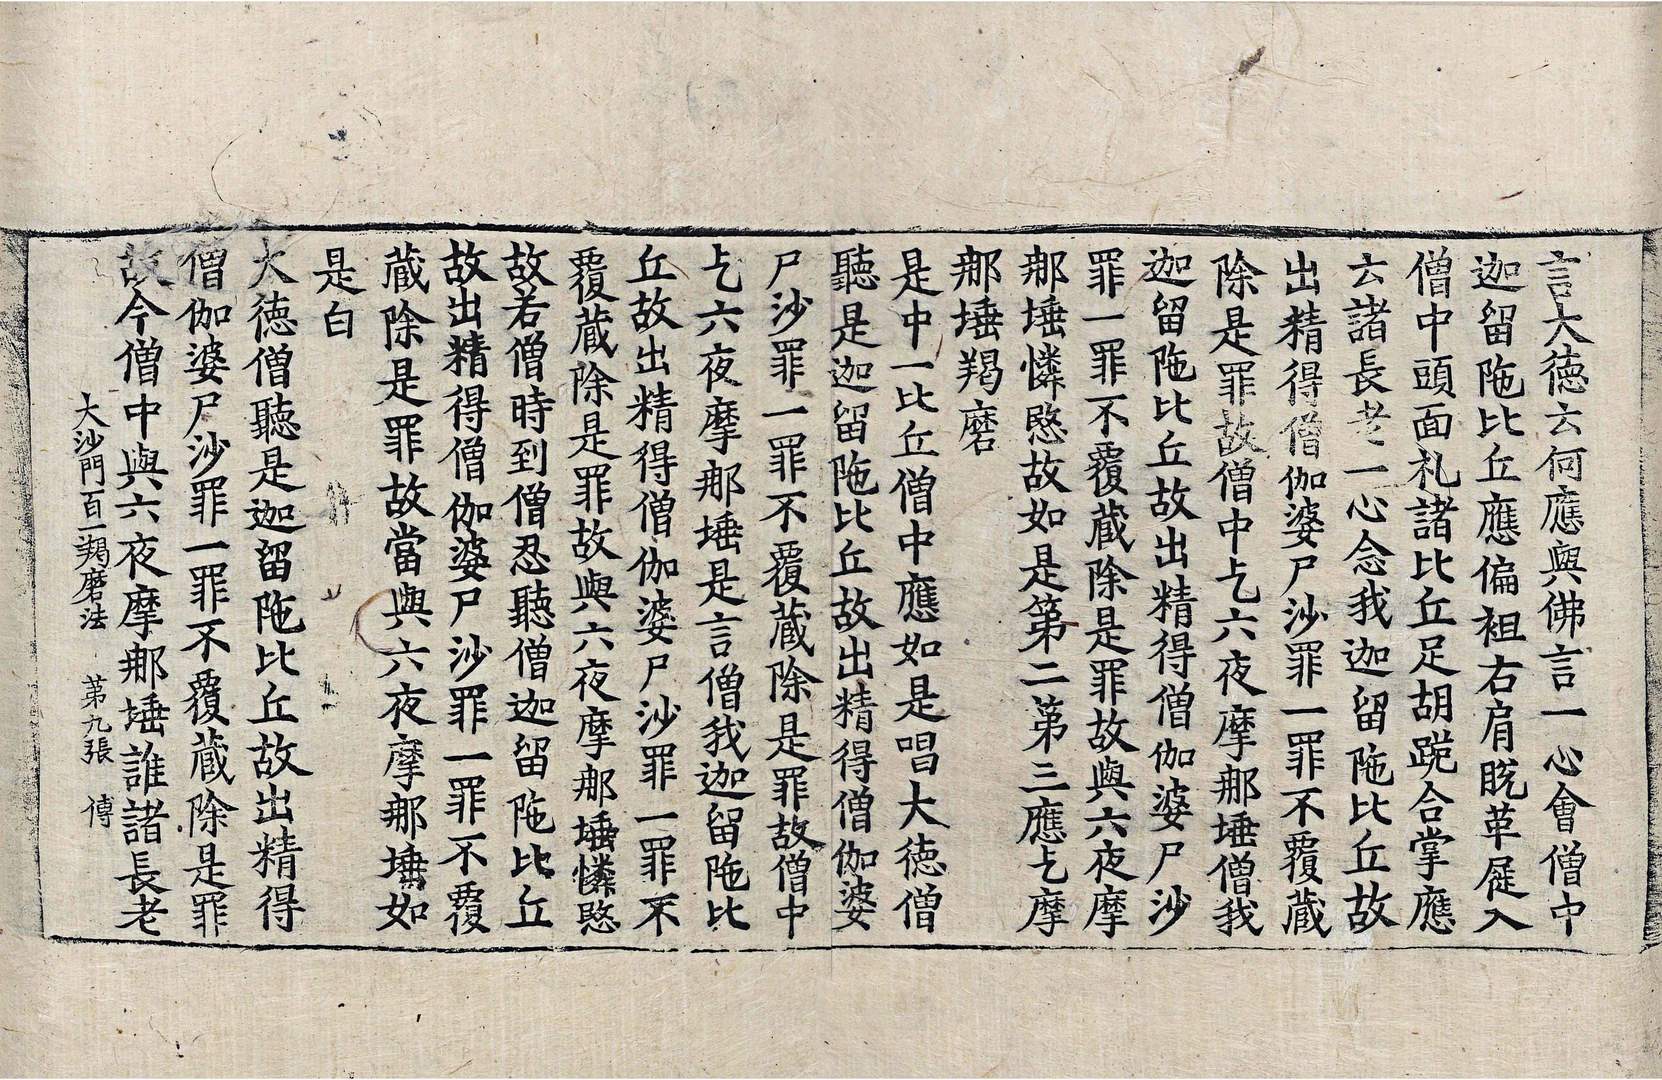 言大徳云何應與佛言一心會僧中
迦留陁比丘應偏袒右肩脫革屣入
僧中頭面礼諸比丘足胡跪合掌應
云諸長老一心念我迦留陁比丘故
出精得僧伽婆尸沙罪一罪不覆藏
除是罪故僧中乞六夜摩那埵僧我
迦留陁比丘故出精得僧伽婆尸沙
罪一罪不覆藏除是罪故與六夜摩
那埵憐愍故如是第二第三應乞摩
那埵羯磨
是中一比丘僧中應如是唱大徳僧
聽是迦留陁比丘故出精得僧伽婆
尸沙罪一罪不覆藏除是罪故僧中
乞六夜摩那埵是言僧我迦留陁比
丘故出精得僧伽婆尸沙罪一罪不
覆藏除是罪故與六夜摩那埵憐愍
故若僧時到僧忍聽僧迦留陁比丘
故出精得僧伽婆尸沙罪一罪不覆
藏除是罪故當與六夜摩那埵如
是白
大徳僧聽是迦留陁比丘故出精得
僧伽婆尸沙罪一罪不覆藏除是罪
故今僧中與六夜摩那埵誰諸長老
大沙門百一羯磨法 第九張 傅